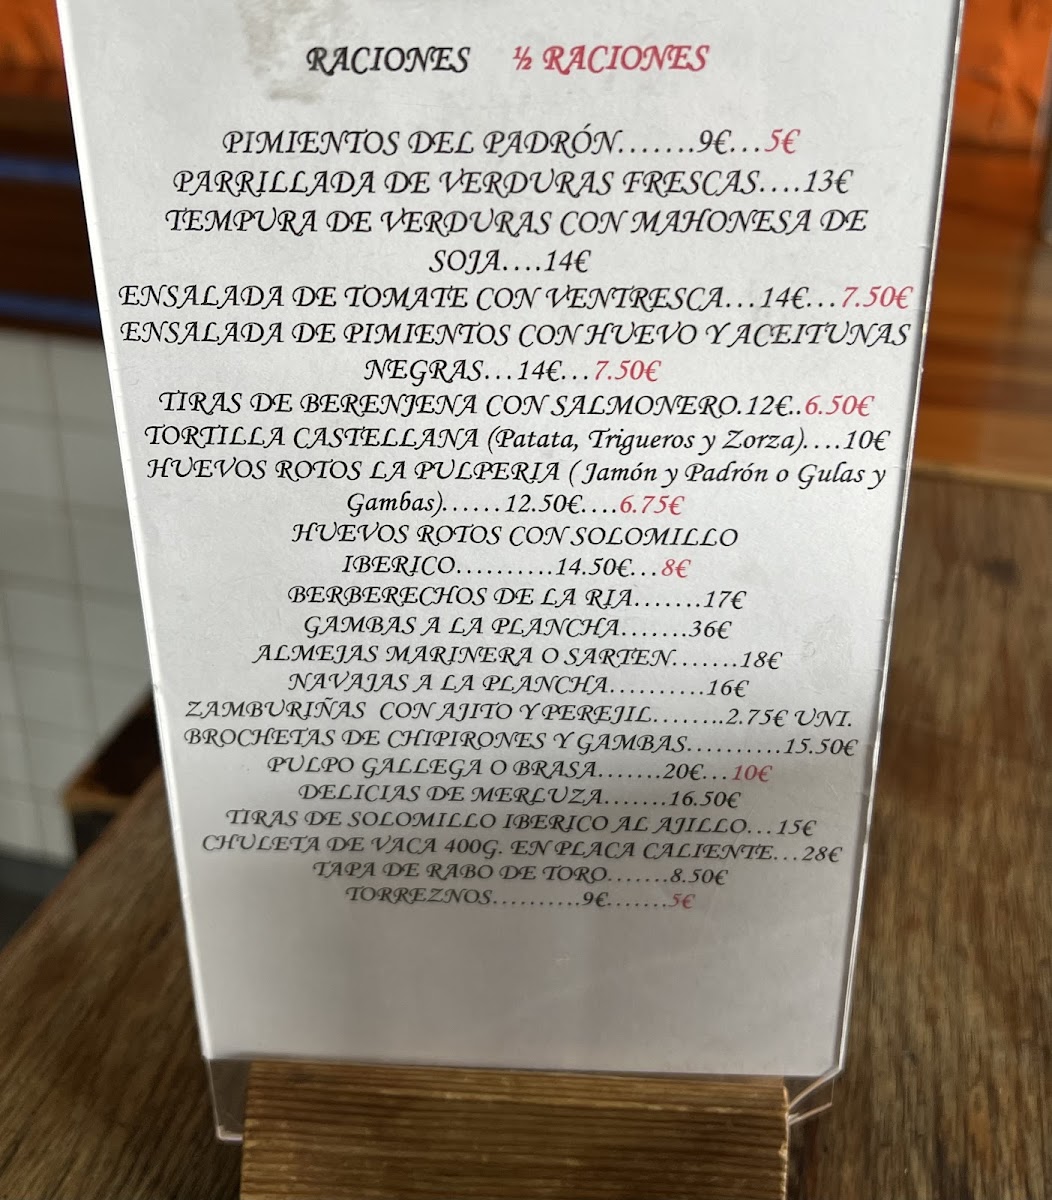 RACIONES ½ RACIONES
PIMIENTOS DEL PADRÓN.......9€...5€
PARRILLADA DE VERDURAS FRESCAS....13€
TEMPURA DE VERDURAS CON MAHONESA DE
SOJA....14€
ENSALADA DE TOMATE CON VENTRESCA...14€...7.50€
ENSALADA DE PIMIENTOS CON HUEVO Y ACEITUNAS
NEGRAS...14€...7.50€
TIRAS DE BERENJENA CON SALMONERO.12€..6.50€
TORTILLA CASTELLANA (Patata, Trigueros y Zorza)....10€
HUEVOS ROTOS LA PULPERIA ( Jamón y Padrón o Gulas y
Gambas)......12.50€....6.75€
HUEVOS ROTOS CON SOLOMILLO
IBERICO..........14.50€...8€
BERBERECHOS DE LA RIA.......17€
GAMBAS A LA PLANCHA.......36€
ALMEJAS MARINERA O SARTEN.......18€
NAVAJAS A LA PLANCHA..........16€
ZAMBURIÑAS CON AJITO Y PEREJIL........2.75€ UNI.
BROCHETAS DE CHIPIRONES Y GAMBAS..........15.50€
PULPO GALLEGA O BRASA.......20€...10€
DELICIAS DE MERLUZA.......16.50€
TIRAS DE SOLOMILLO IBERICO AL AJILLO...15€
CHULETA DE VACA 400G. EN PLACA CALIENTE...28€
TAPA DE RABO DE TORO.......8.50€
TORREZNOS..........9€.......5€